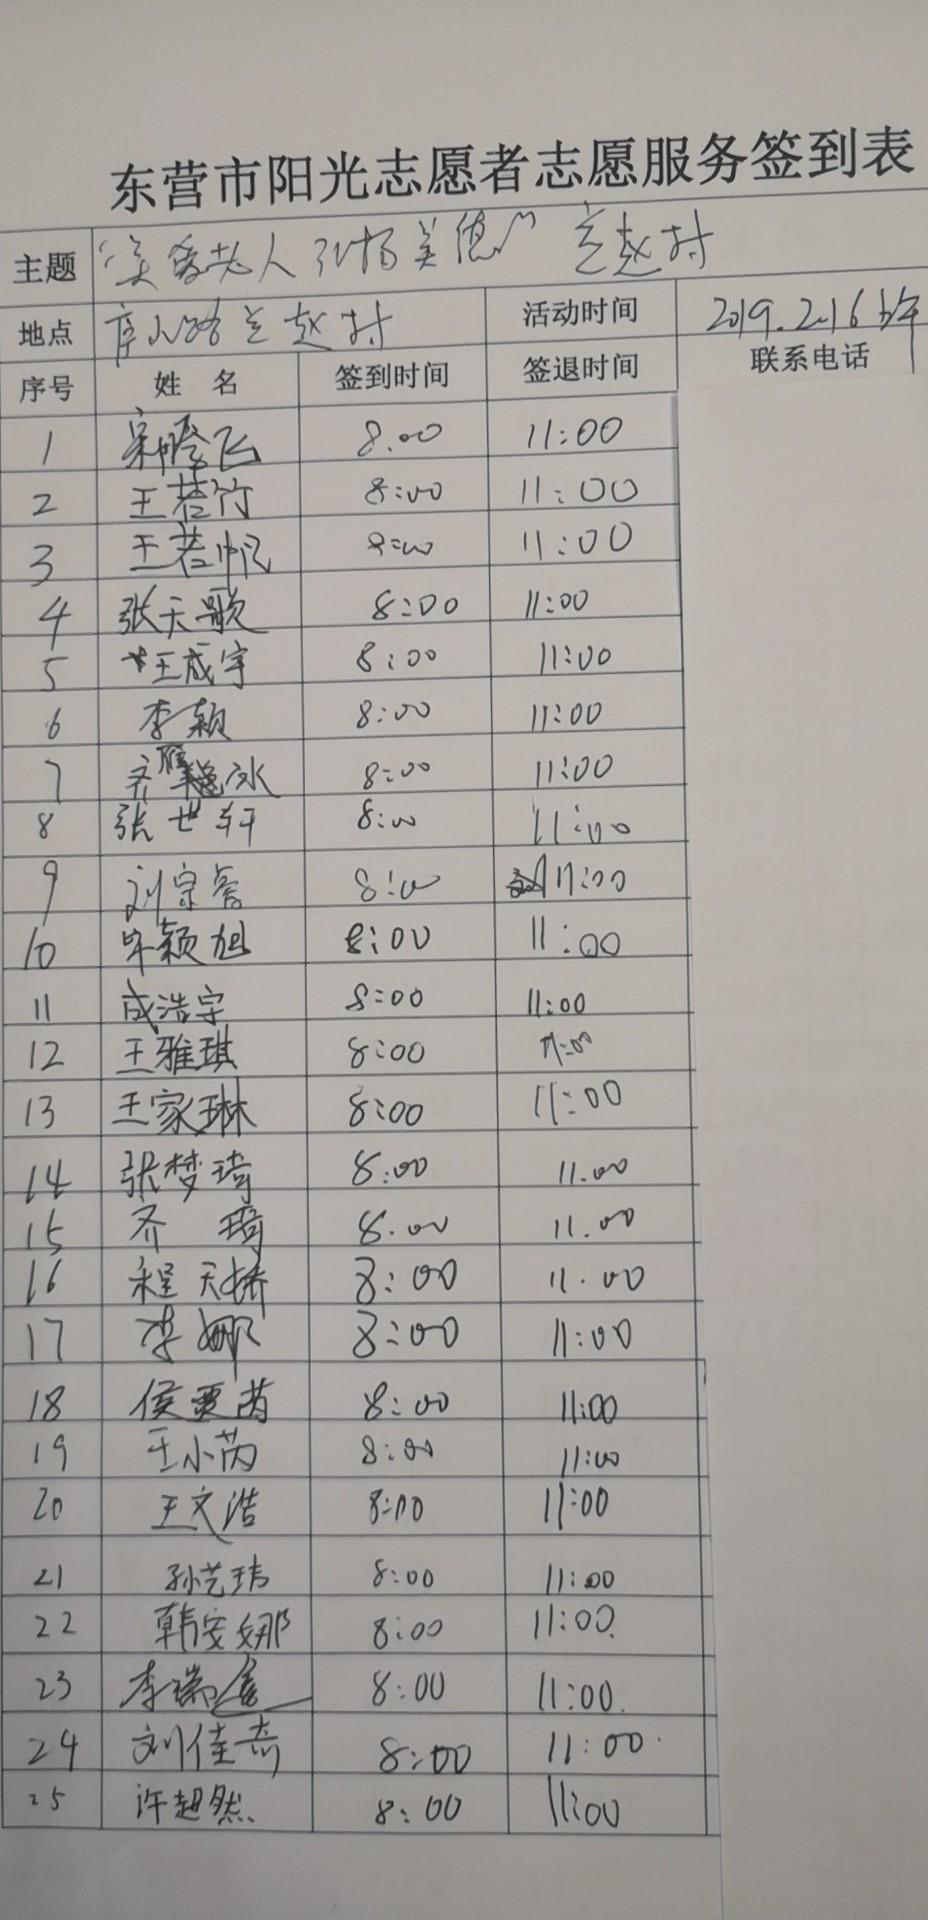 东营市阳光志愿者志愿服务签到表
主题 "关爱老人 弘扬美德" 赵村
地点 赵村 活动时间 2019.2.16 上午
序号 姓 名 签到时间 签退时间 联系电话
1 飞 8.00 11:00
2 王若竹 8:00 11:00
3 王若帆 8:00 11:00
4 张天歌 8:00 11:00
5 王成宇 8:00 11:00
6 李颖 8:00 11:00
7 齐 冰 8:00 11:00
8 张世轩 8:00 11:00
9 刘宗 8:00 11:00
10 毕颖旭 8:00 11:00
11 成浩宇 8:00 11:00
12 王雅琪 8:00 11:00
13 王家琳 8:00 11:00
14 张梦琦 8:00 11.00
15 齐 琦 8.00 11.00
16 程天 8:00 11.00
17 李娜 8:00 11:00
18 侯 茜 8:00 11:00
19 王小芮 8:00 11:00
20 王文浩 8:00 11:00
21 孙艺玮 8:00 11:00
22 韩安娜 8:00 11:00
23 李瑞 8:00 11:00
24 刘佳 8:00 11:00
25 许超然 8:00 11:00